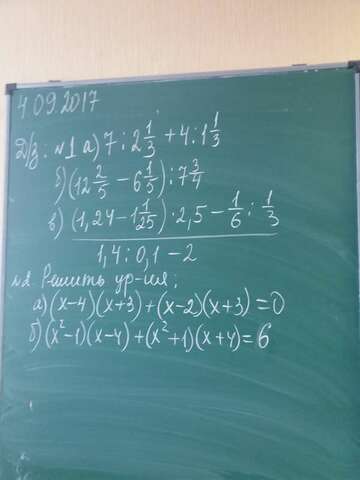 4.09.2017
Д/з: №1 а) 7 : 2 1/3 + 4 : 1 1/3
б) (12 2/5 − 6 1/5) : 7 3/4
в) (1,24 − 1 1/25) · 2,5 − 1/6 : 1/3
1,4 : 0,1 − 2
№2 Решить ур-ия;
а) (x−4)(x+3)+(x−2)(x+3)=0
б) (x²−1)(x−4)+(x²+1)(x+4)=6